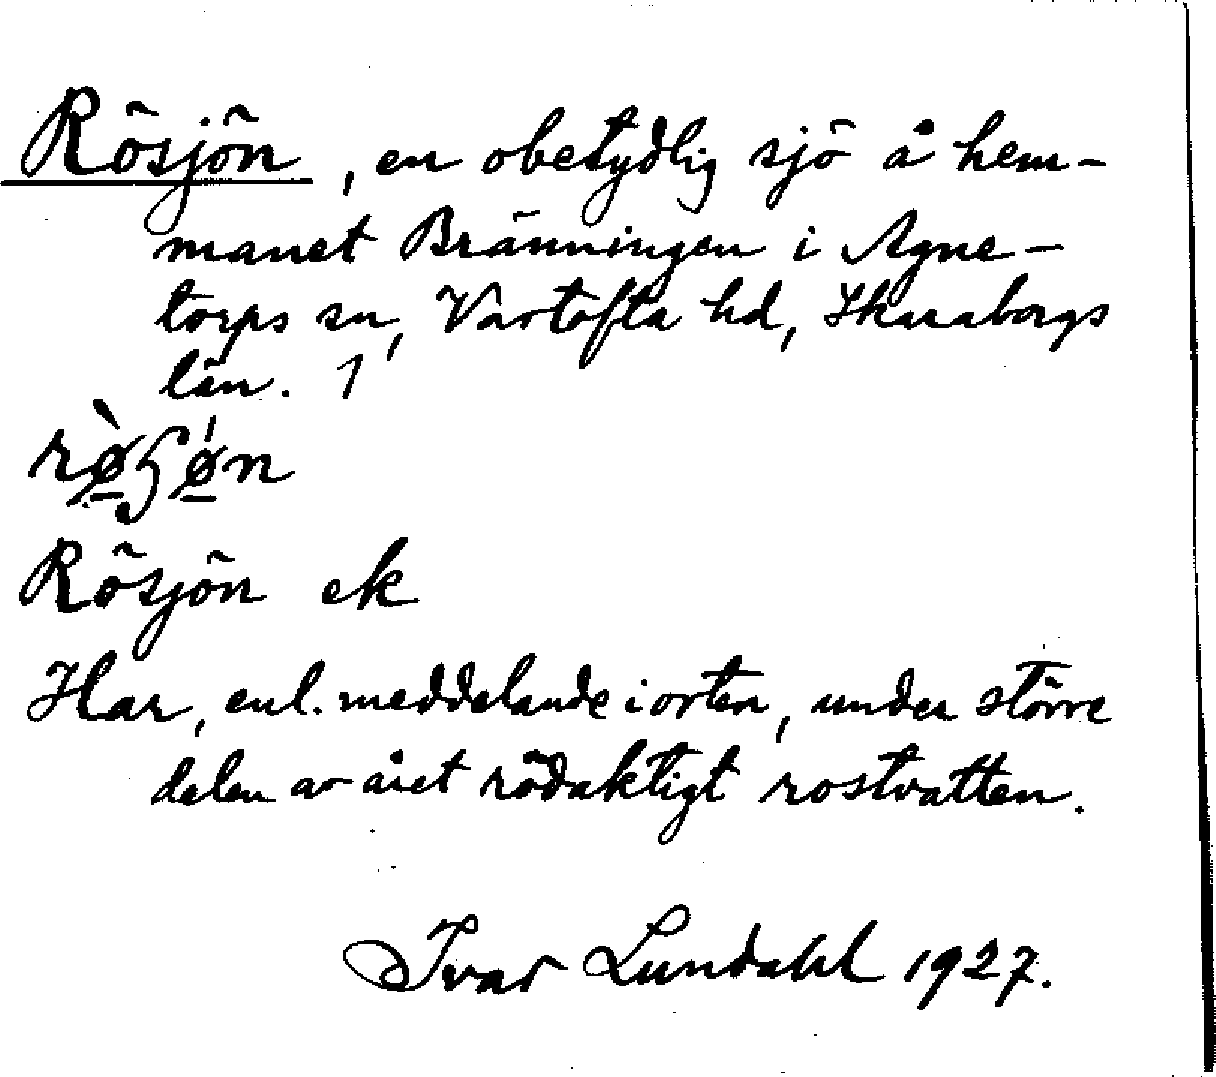 Rösjön, en obetydlig sjö å hem-
manet Bränningen i Agne-
torps sn, Vartofta hd, Skaraborgs
län. 1
Rösjön ek
Har, enl. meddelande i orten, under större
delen av året rödaktigt rostvatten.
Ivar Lundahl 1927.